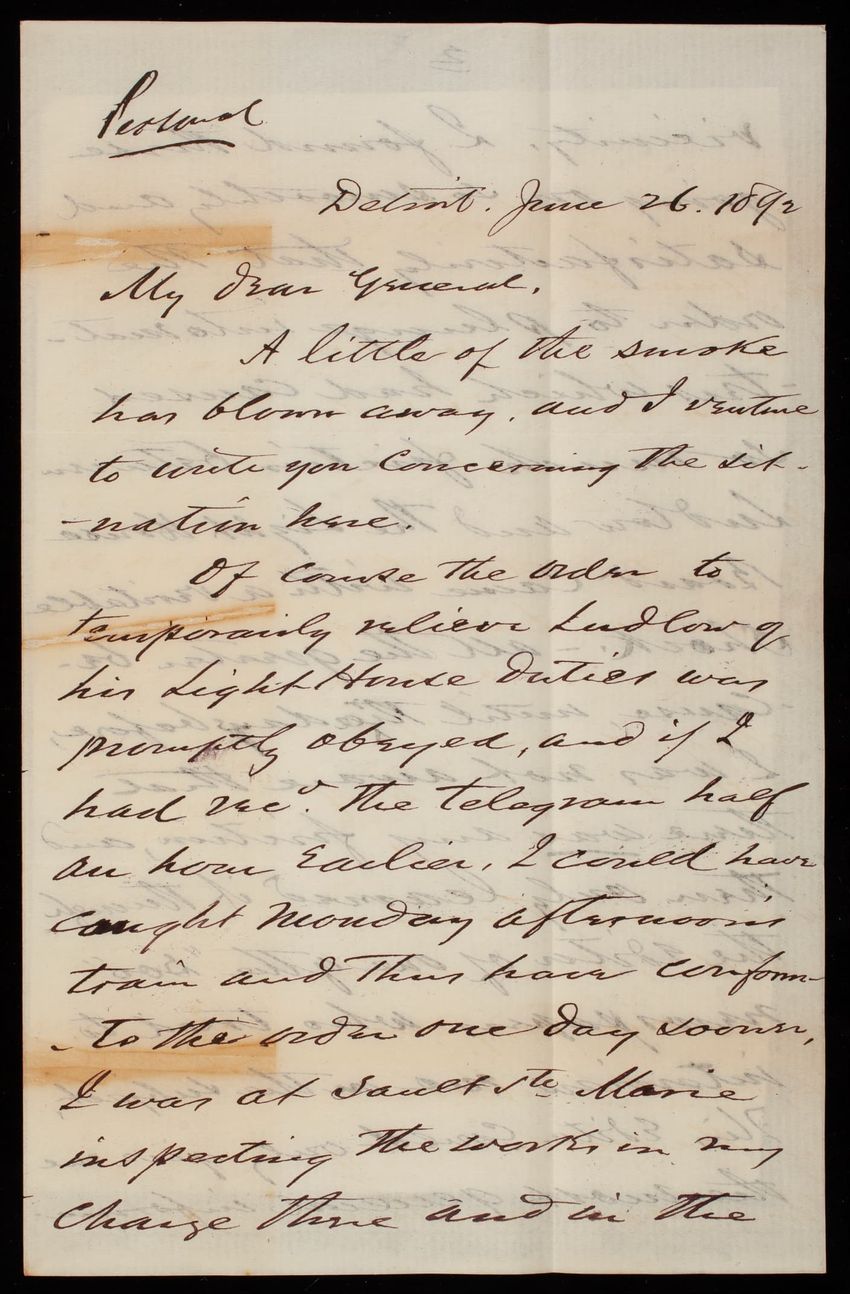 Personal
Detroit. June 26. 1892
My dear General,
A little of the smoke
has blown away, and I venture
to write you concerning the sit-
-uation here.
Of course the order to
temporarily relieve Ludlow of
his Light House duties was
promptly obeyed, and if I
had recd. the telegram half
an hour earlier, I could have
caught Monday afternoon's
train and thus have conform-
- to the order one day sooner,
I was at Sault Ste Marie
inspecting the works in my
charge there and in the